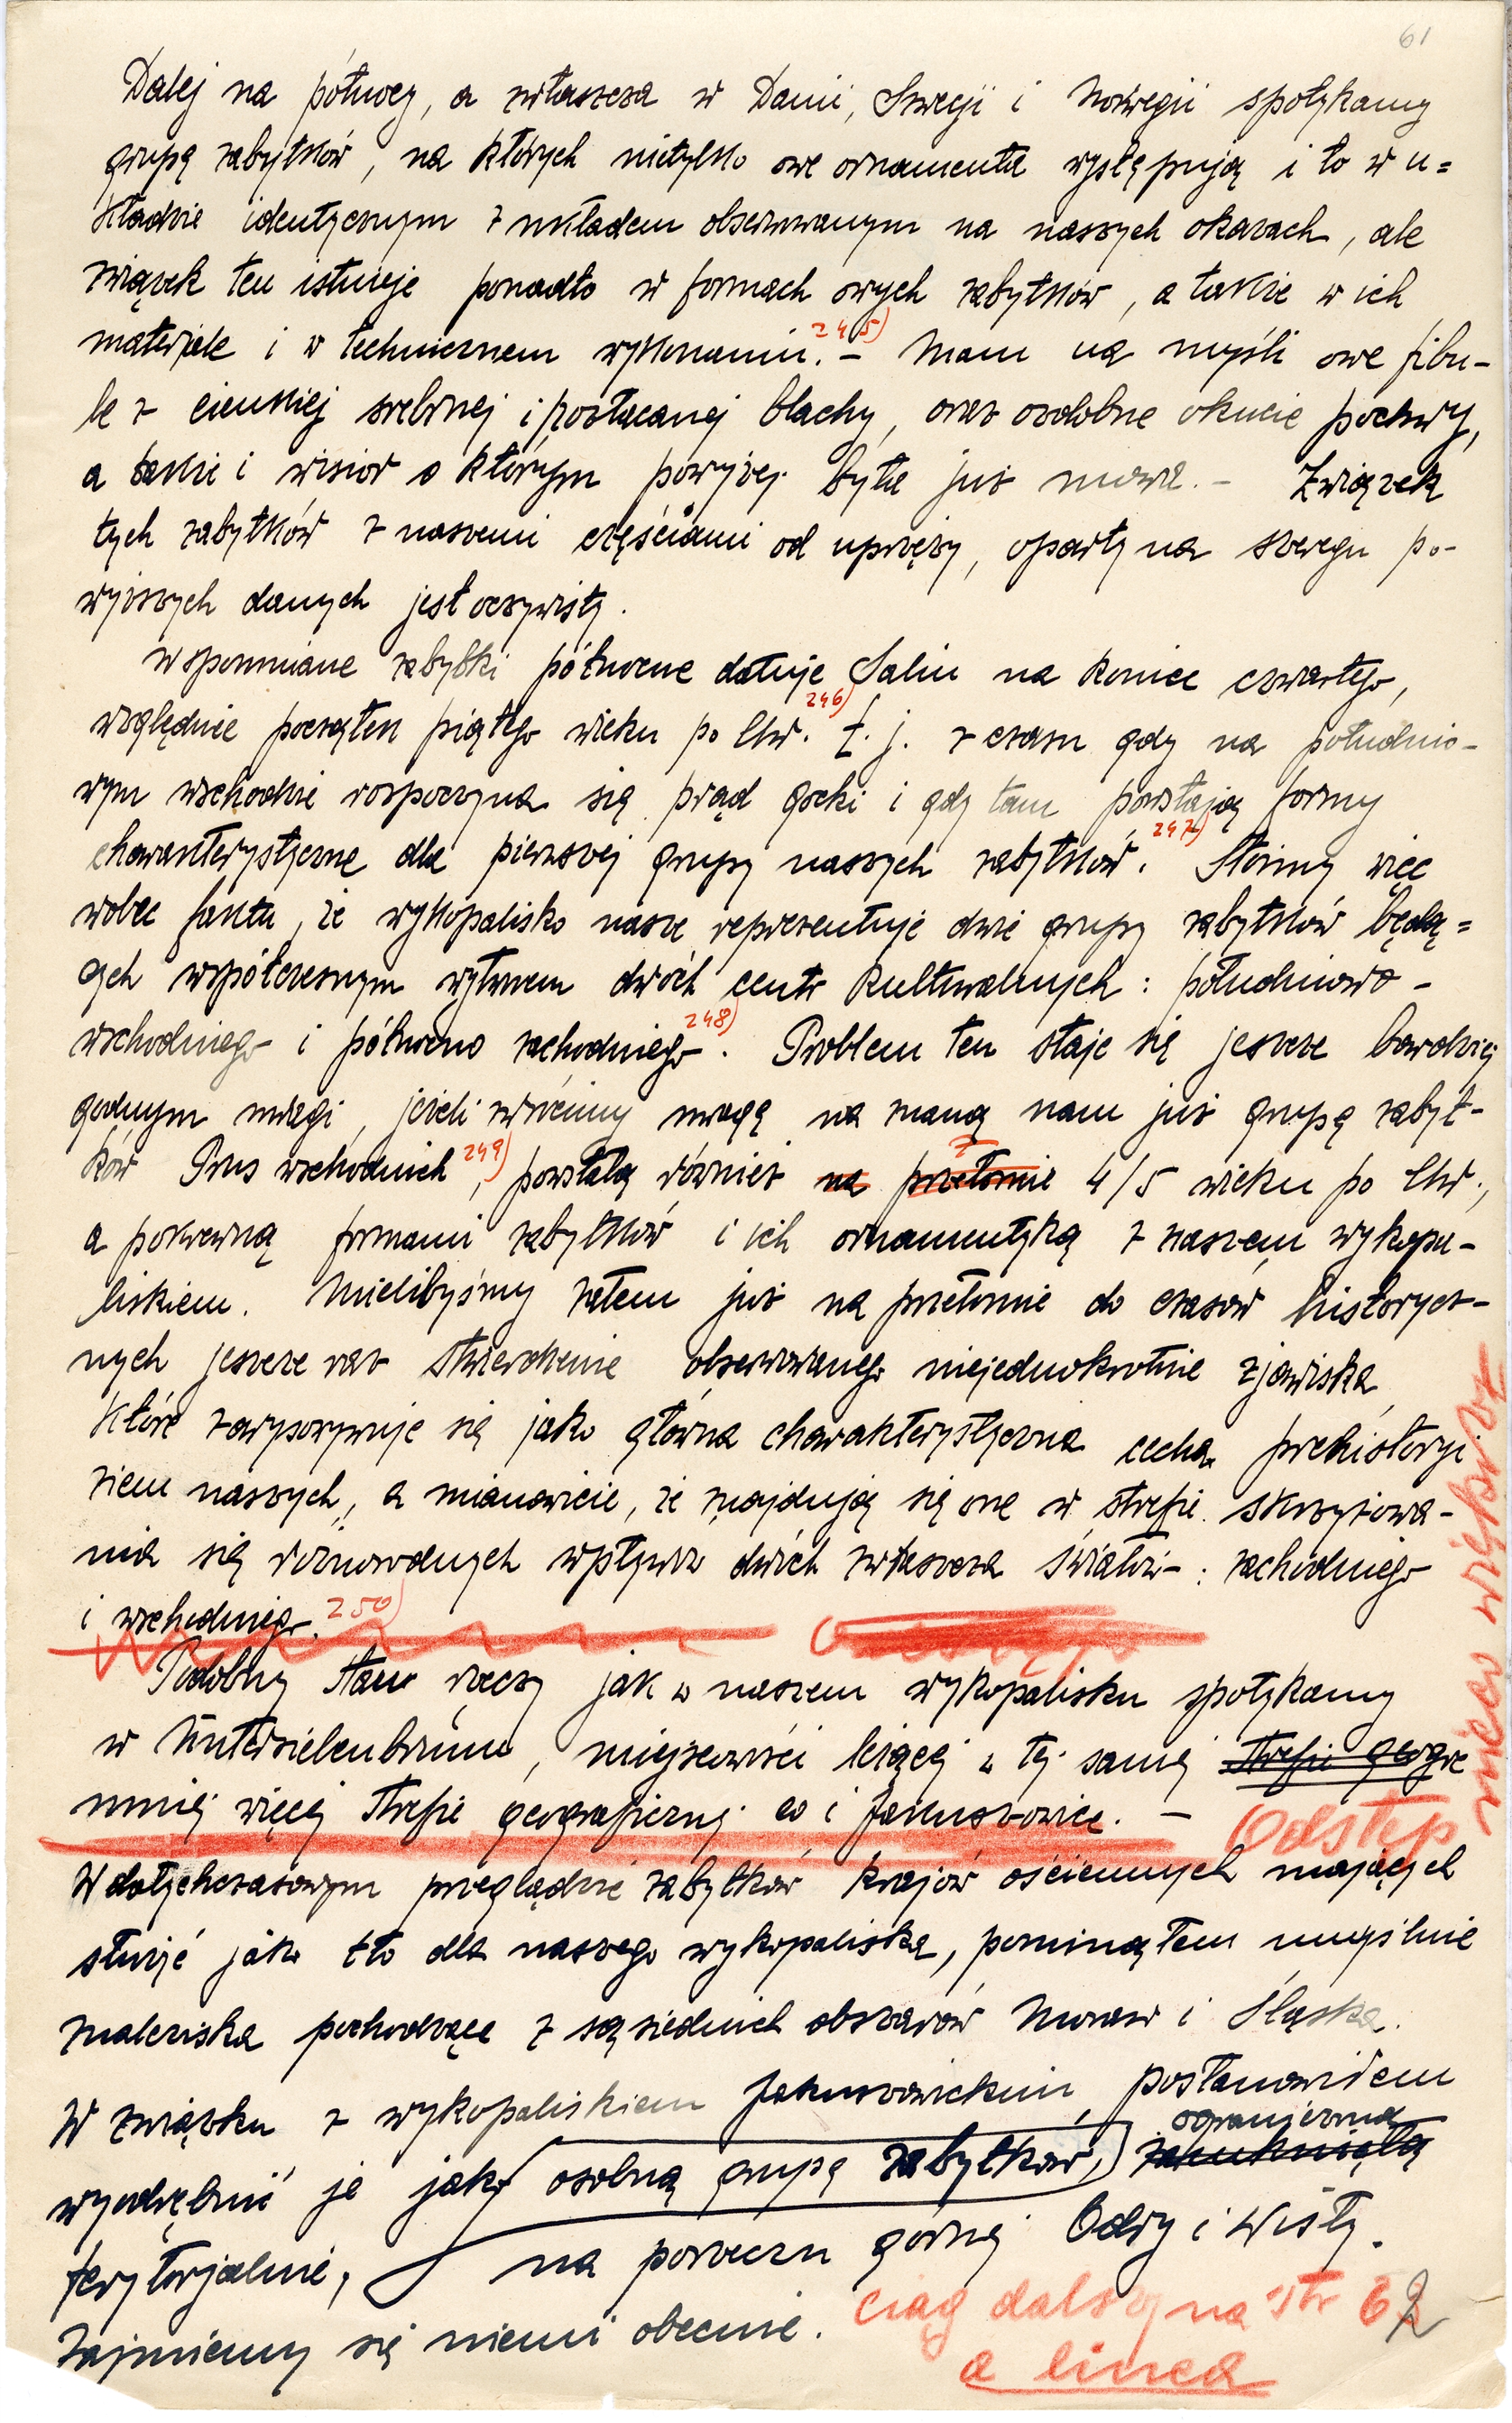 61
Dalej na północy, a zwłaszcza w Danii, Szwecji i Norwegii spotykamy
grupę zabytków, na których nietylko owe ornamenta występują i to w u=
kładzie identycznym z układem obserwowanym na naszych okazach, ale
związek ten istnieje ponadto w formach owych zabytków, a także w ich
materjale i w technicznem wykonaniu.²⁴⁵⁾ – Mam na myśli owe fibu-
le z cienkiej srebrnej i pozłacanej blachy, oraz ozdobne okucie pochwy,
a także i wisior o którym powyżej była już mowa. – Związek
tych zabytków z naszemi częściami od uprzęży, oparty na szeregu po-
wyższych danych jest oczywisty.
Wspomniane zabytki północne datuje Salin na koniec czwartego,
względnie początek piątego wieku po Chr.²⁴⁶⁾ t. j. z czasu gdy na południo-
wym wschodzie rozpoczyna się prąd gocki i gdy tam powstają formy
charakterystyczne dla pierwszej grupy naszych zabytków.²⁴⁷⁾ Stoimy więc
wobec faktu, że wykopalisko nasze reprezentuje dwie grupy zabytków będą=
cych współczesnym wytworem dwóch centr kulturalnych: południowo-
wschodniego i północno zachodniego²⁴⁸⁾. Problem ten staje się jeszcze bardziej
godnym uwagi, jeżeli zwrócimy uwagę na znaną nam już grupę zabyt-
ków Prus wschodnich²⁴⁹⁾, powstałą również na przełomie z 4/5 wieku po Chr.,
a pokrewną formami zabytków i ich ornamentyką z naszem wykopa-
liskiem. Mielibyśmy zatem już na przełomie do czasów historycz-
nych jeszcze raz stwierdzenie obserwowanego niejednokrotnie zjawiska,
które zarysowywuje się jako główna charakterystyczna cecha prehistoryi
ziem naszych, a mianowicie, że znajdują się one w strefie skrzyżowa-
nia się różnorodnych wpływów dwóch zwłaszcza światów: zachodniego
i wschodniego.²⁵⁰⁾
Podobny stan rzeczy jak w naszem wykopalisku spotykamy
w Untersiebenbrunn, miejscowości leżącej w tej samej strefie geogra
mniej więcej strefie geograficznej co i Jakuszowice. –
Odstęp
nieco większy
W dotychczasowym przeglądzie zabytków krajów ościennych mających
służyć jako tło dla naszego wykopaliska, pominąłem umyślnie
znaleziska pochodzące z sąsiednich obszarów Moraw i Śląska.
W związku z wykopaliskiem Jakuszowickim, postanowiłem
wyodrębnić je jako osobną grupę zabytków, zamkniętą ograniczoną
terytorjalnie, na porzeczu górnej Odry i Wisły.
Zajmiemy się niemi obecnie.
ciąg dalszy na str 62
a linea